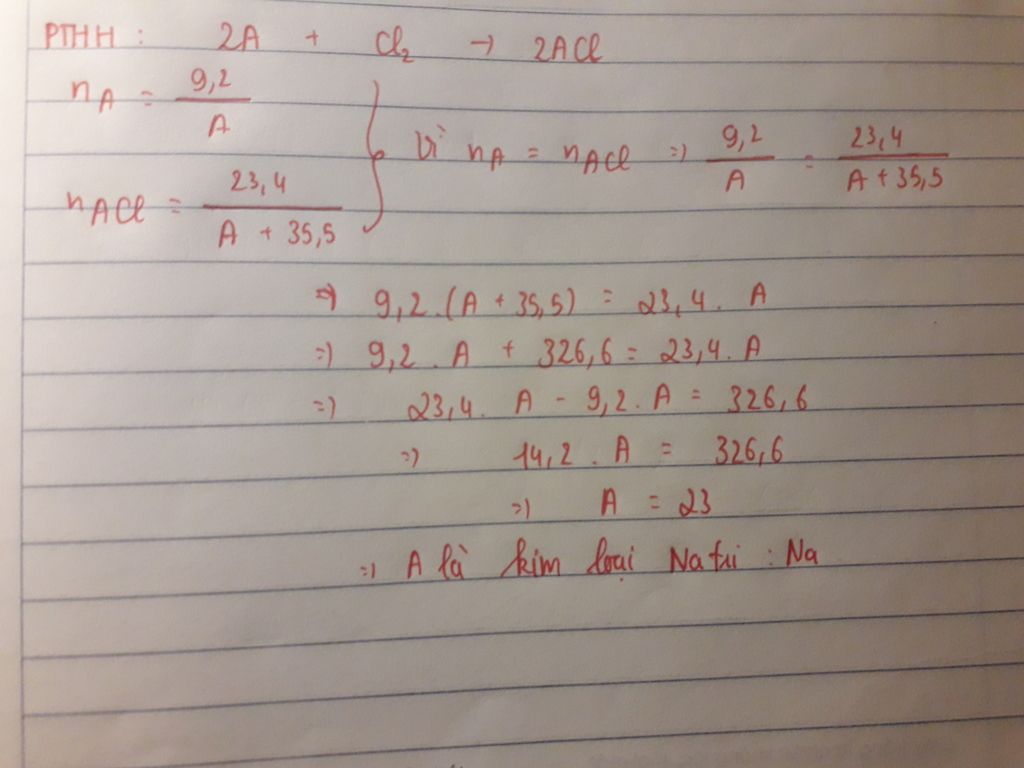 PTHH : 2A + Cl₂ → 2ACl
n_A = 9,2 / A
n_ACl = 23,4 / (A + 35,5)
} Vì n_A = n_ACl => 9,2 / A = 23,4 / (A + 35,5)
=> 9,2 . (A + 35,5) = 23,4 . A
=> 9,2 . A + 326,6 = 23,4 . A
=> 23,4 . A - 9,2 . A = 326,6
=> 14,2 . A = 326,6
=> A = 23
=> A là kim loại Natri : Na